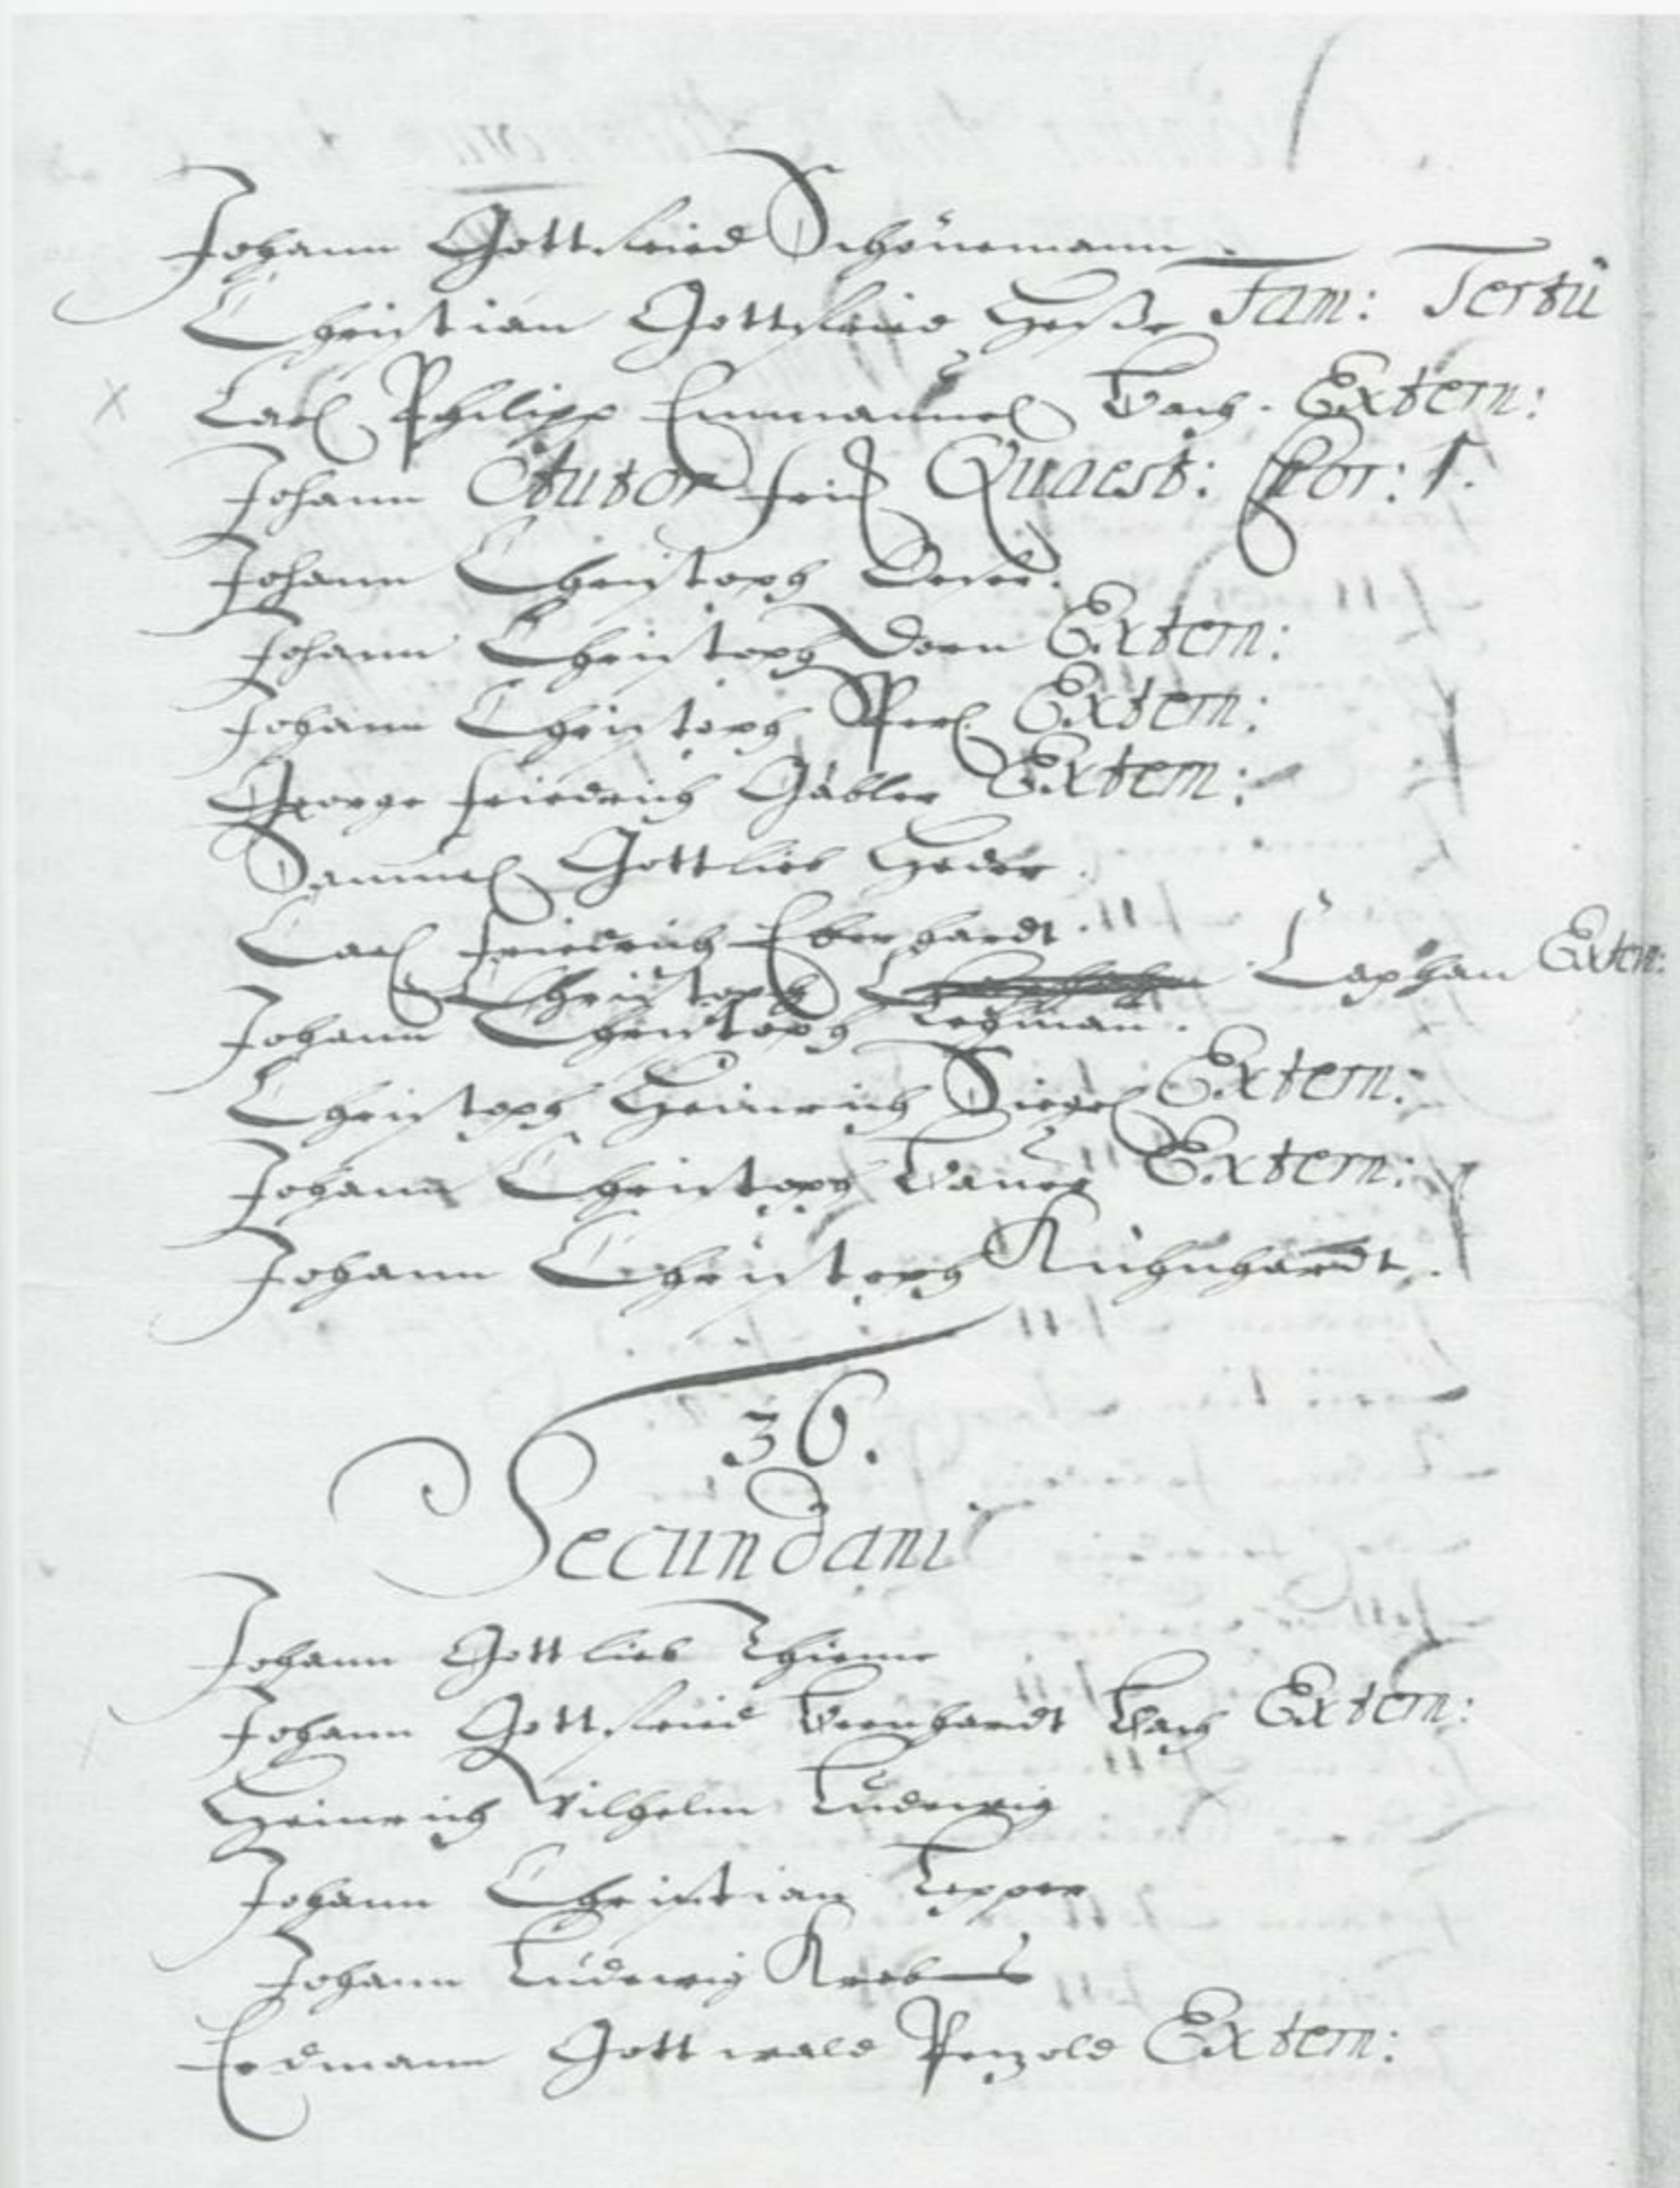 Johann Gottfried Schönemann.
Christian Gottfried Heße Fam: Tertii
Carl Philipp Emmanuel Bach. Extern:
Johann Tutor Quaest: Chor: 1.
Johann Christoph
Johann Christoph Dorn Extern:
Johann Christoph Extern:
George Friedrich Gäbler Extern:
Samuel Gottlieb Heder.
Carl Friedrich Eberhardt.
Christoph Laphan Extern:
Johann Christoph Lehman.
Christoph Heinrich Siegel Extern:
Johann Christoph Bauer Extern:
Johann Christoph Kühnhardt.
36.
Secundani
Johann Gottlieb Thieme
Johann Gottfried Bernhardt Bach Extern:
Heinrich Wilhelm Ludewig
Johann Christian Lepper
Johann Ludewig Krebs
Erdmann Gottwald Pezold Extern: